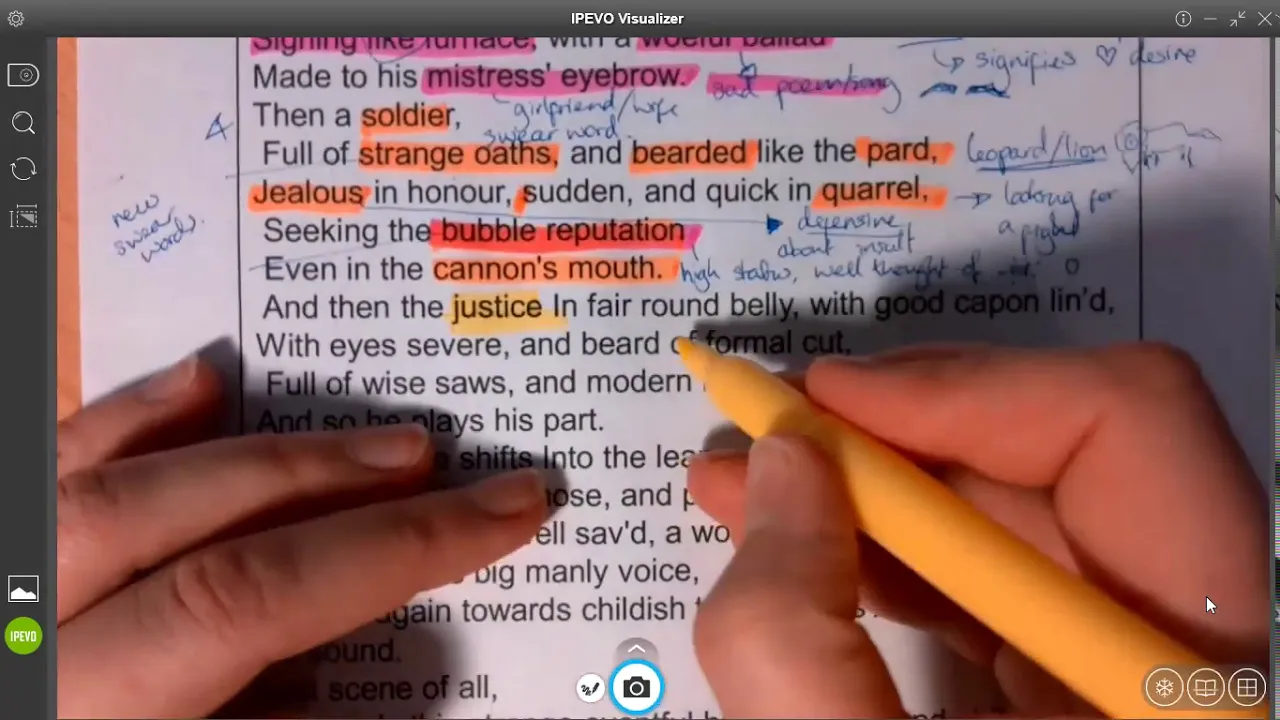 IPEVO Visualizer
Signing like furnace, with a woeful ballad
signifies ♡ desire
Made to his mistress' eyebrow.
sad poem/song
girlfriend/wife
Then a soldier,
4
swear word
Full of strange oaths, and bearded like the pard,
leopard/lion
Jealous in honour, sudden, and quick in quarrel,
looking for
a fight
new
swear
words.
defensive
about insult
Seeking the bubble reputation
Even in the cannon's mouth.
high status, well thought of
And then the justice In fair round belly, with good capon lin'd,
With eyes severe, and beard of formal cut,
Full of wise saws, and modern
And so he plays his part.
shifts Into the lea
hose, and p
ell sav'd, a wo
big manly voice,
again towards childish t
ound.
scene of all,
IPEVO